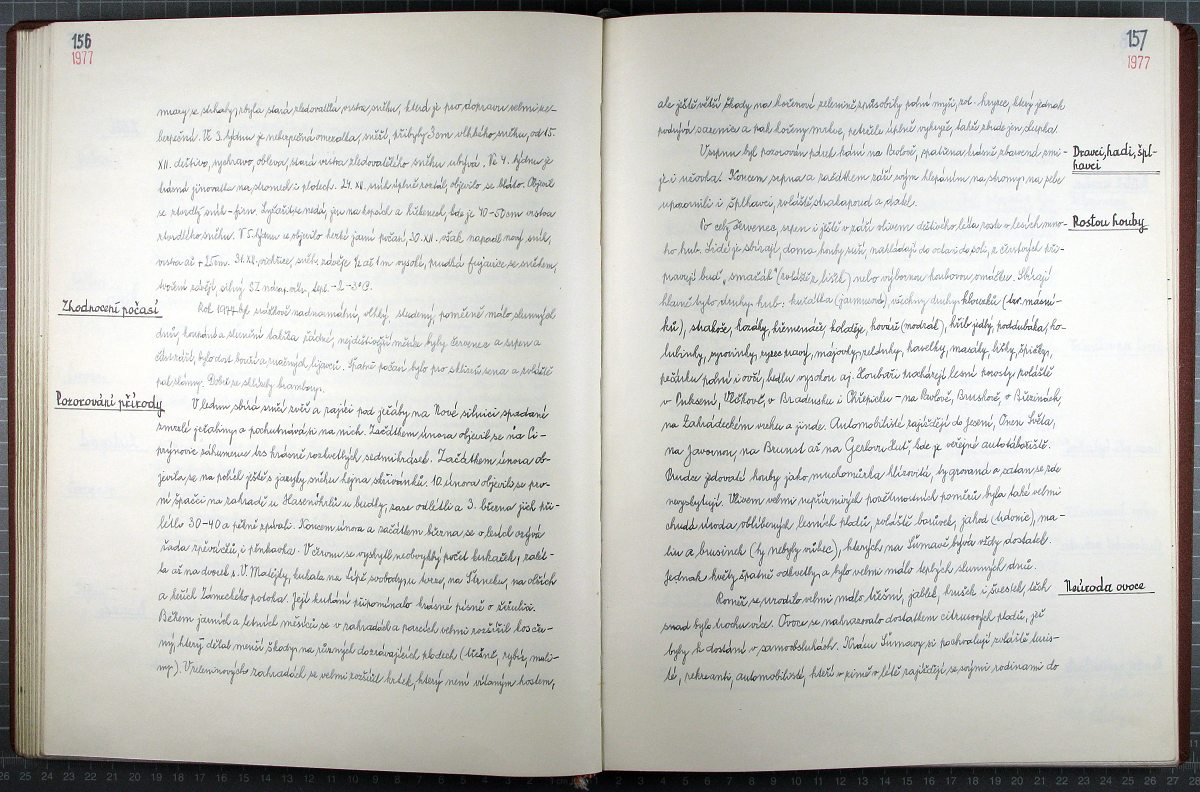 156
1977
mrazy se střídaly, zbyla stará zledovatělá vrstva sněhu, která je pro dopravu velmi ne-
bezpečná. Ve 3. týdnu je nebezpečná omrzalka, sněží, přibyly 3 cm vlhkého sněhu, od 15.
XII. deštivo, sychravo, obleva, stará vrstva zledovatělého sněhu ubývá. Ve 4. týdnu je
krásná jinovatka na stromech i plotech. 24. XII. sníh úplně roztál, objevilo se bláto. Objevil
se ztvrdlý sníh - firn. Lyžařit se nedá, jen na kopcích a Huťských, kde je 40-50 cm vrstva
ztvrdlého sněhu. V 5. týdnu se objevilo hezké jarní počasí, 30. XII. však napadl nový sníh,
vrstva až + 25 cm. 31. XII. vichřice, sníh, závěje až 1 m vysoké, prudká fujavice se sněhem,
tvoření závějí, silný SZ náraz. vítr, tepl. -2 -3°C.
Zhodnocení počasí
Rok 1977 byl srážkově nadnormální, vlhký, studený, poměrně málo slunných
dnů, koupání a slunění takřka žádné, nejdeštivější měsíce byly červenec a srpen a
částečně, bylo dost bouří a průtrží, lijavců. Špatné počasí bylo pro sklizeň sena a zvláště
pol. slámy. Dobře se sklízely brambory.
Pozorování přírody
V lednu sbírá srnčí zvěř a zajíci pod jeřáby na Nové silnici spadané
zmrzlé jeřabiny a pochutnává si na nich. Začátkem února objevil se na Ci-
priýnovic záhumenu trs krásně rozkvetlých sedmikrásek. Začátkem února ob-
jevila se na polích ještě s jazyky sněhu hejna skřivánků. 10. února objevili se prv-
ní špačci na zahradě u Hasenöhrlů u budky, zase odlétli a 3. března jich při-
létlo 30-40 a pěkně zpívali. Koncem února a začátkem března se v lesích ozývá
řada zpěváčků i pěnkavka. V červnu se vyskytl neobvyklý počet kukaček, zalét-
la až na dvorek s. V. Matějky, kukala na lípě svobody u tvrze, na Strnelu, na olších
a keřích Zámeckého potoka. Její kukání připomínalo krásné písně o žežulce.
Během jarních a letních měsíců se v zahradách a parcích velmi rozšířil kos čer-
ný, který dělal menší škody na různých dozrávajících plodech (třešně, rybíz, mali-
ny). V zeleninových zahradách se velmi rozšířil krtek, který není vítaným hostem,
157
1977
ale ještě větší škody na kořenové zelenině způsobily polní myši, zvl. hryzec, který jednak
podrývá sazenice a pak kořeny mrkve, petržele úplně vykouše, takže zbude jen slupka.
Dravci, hadi, špl-
havci
V srpnu byl pozorován párek kání na Prolově, spatřena krásně zbarvená zmi-
je i užovka. Koncem srpna a začátkem září svým klepáním na stromy na sebe
upozornili i šplhavci, zvláště strakapoud a datel.
Rostou houby
Po celý červenec, srpen i ještě v září vlivem deštivého léta roste v lesích mno-
ho hub. Lidé je sbírají, doma houby suší, nakládají do octa i do soli, z čerstvých při-
pravují buď „smažák“ (zvláště z lišek) nebo výbornou houbovou omáčku. Sbírají
hlavně tyto druhy hub: kuřátka (jarmuová), všechny druhy klouzků (tzv. másní-
ků), strakoše, kozáky, křemenáče, koloděje, kováře (modrák), hřib jedlý, poddubáka, ho-
lubinky, syrovinky, ryzec pravý, májovky, zelánky, havelky, masáky, lišky, špičky,
pečárku polní i ovčí, bedlu vysokou aj. Houbaři procházejí lesní porosty zvláště
v Puksení, Vlčkově, v Bradensku i Chřepicku - na Prolově, Bruskově, v Březinách,
na Zahrádeckém vrchu a jinde. Automobilisté zajíždějí do Jesení, Onen Světa,
na Javornou, na Brunst až na Gerlovu Huť, kde je veřejné autotábořiště.
Prudce jedovaté houby jako muchomůrka hlízovitá, tygrovaná a satan se zde
nevyskytují. Vlivem velmi nepříznivých povětrnostních poměrů byla také velmi
chudá úroda oblíbených lesních plodů, zvláště borůvek, jahod (trávnic), ma-
lin a brusinek (ty nebyly vůbec), kterých na Šumavě bývá vždy dostatek.
Jednak květy špatně odkvetly a bylo velmi málo teplých slunných dnů.
Neúroda ovoce
Rovněž se urodilo velmi málo třešní, jablek, hrušek i švestek, těch
snad bylo trochu více. Ovoce se nahrazovalo dostatkem citrusových plodů, jež
byly k dostání v samoobsluhách. Krásu Šumavy si pochvalují zvláště turis-
té, rekreanti, automobilisté, kteří v zimě v létě zajíždějí se svými rodinami do